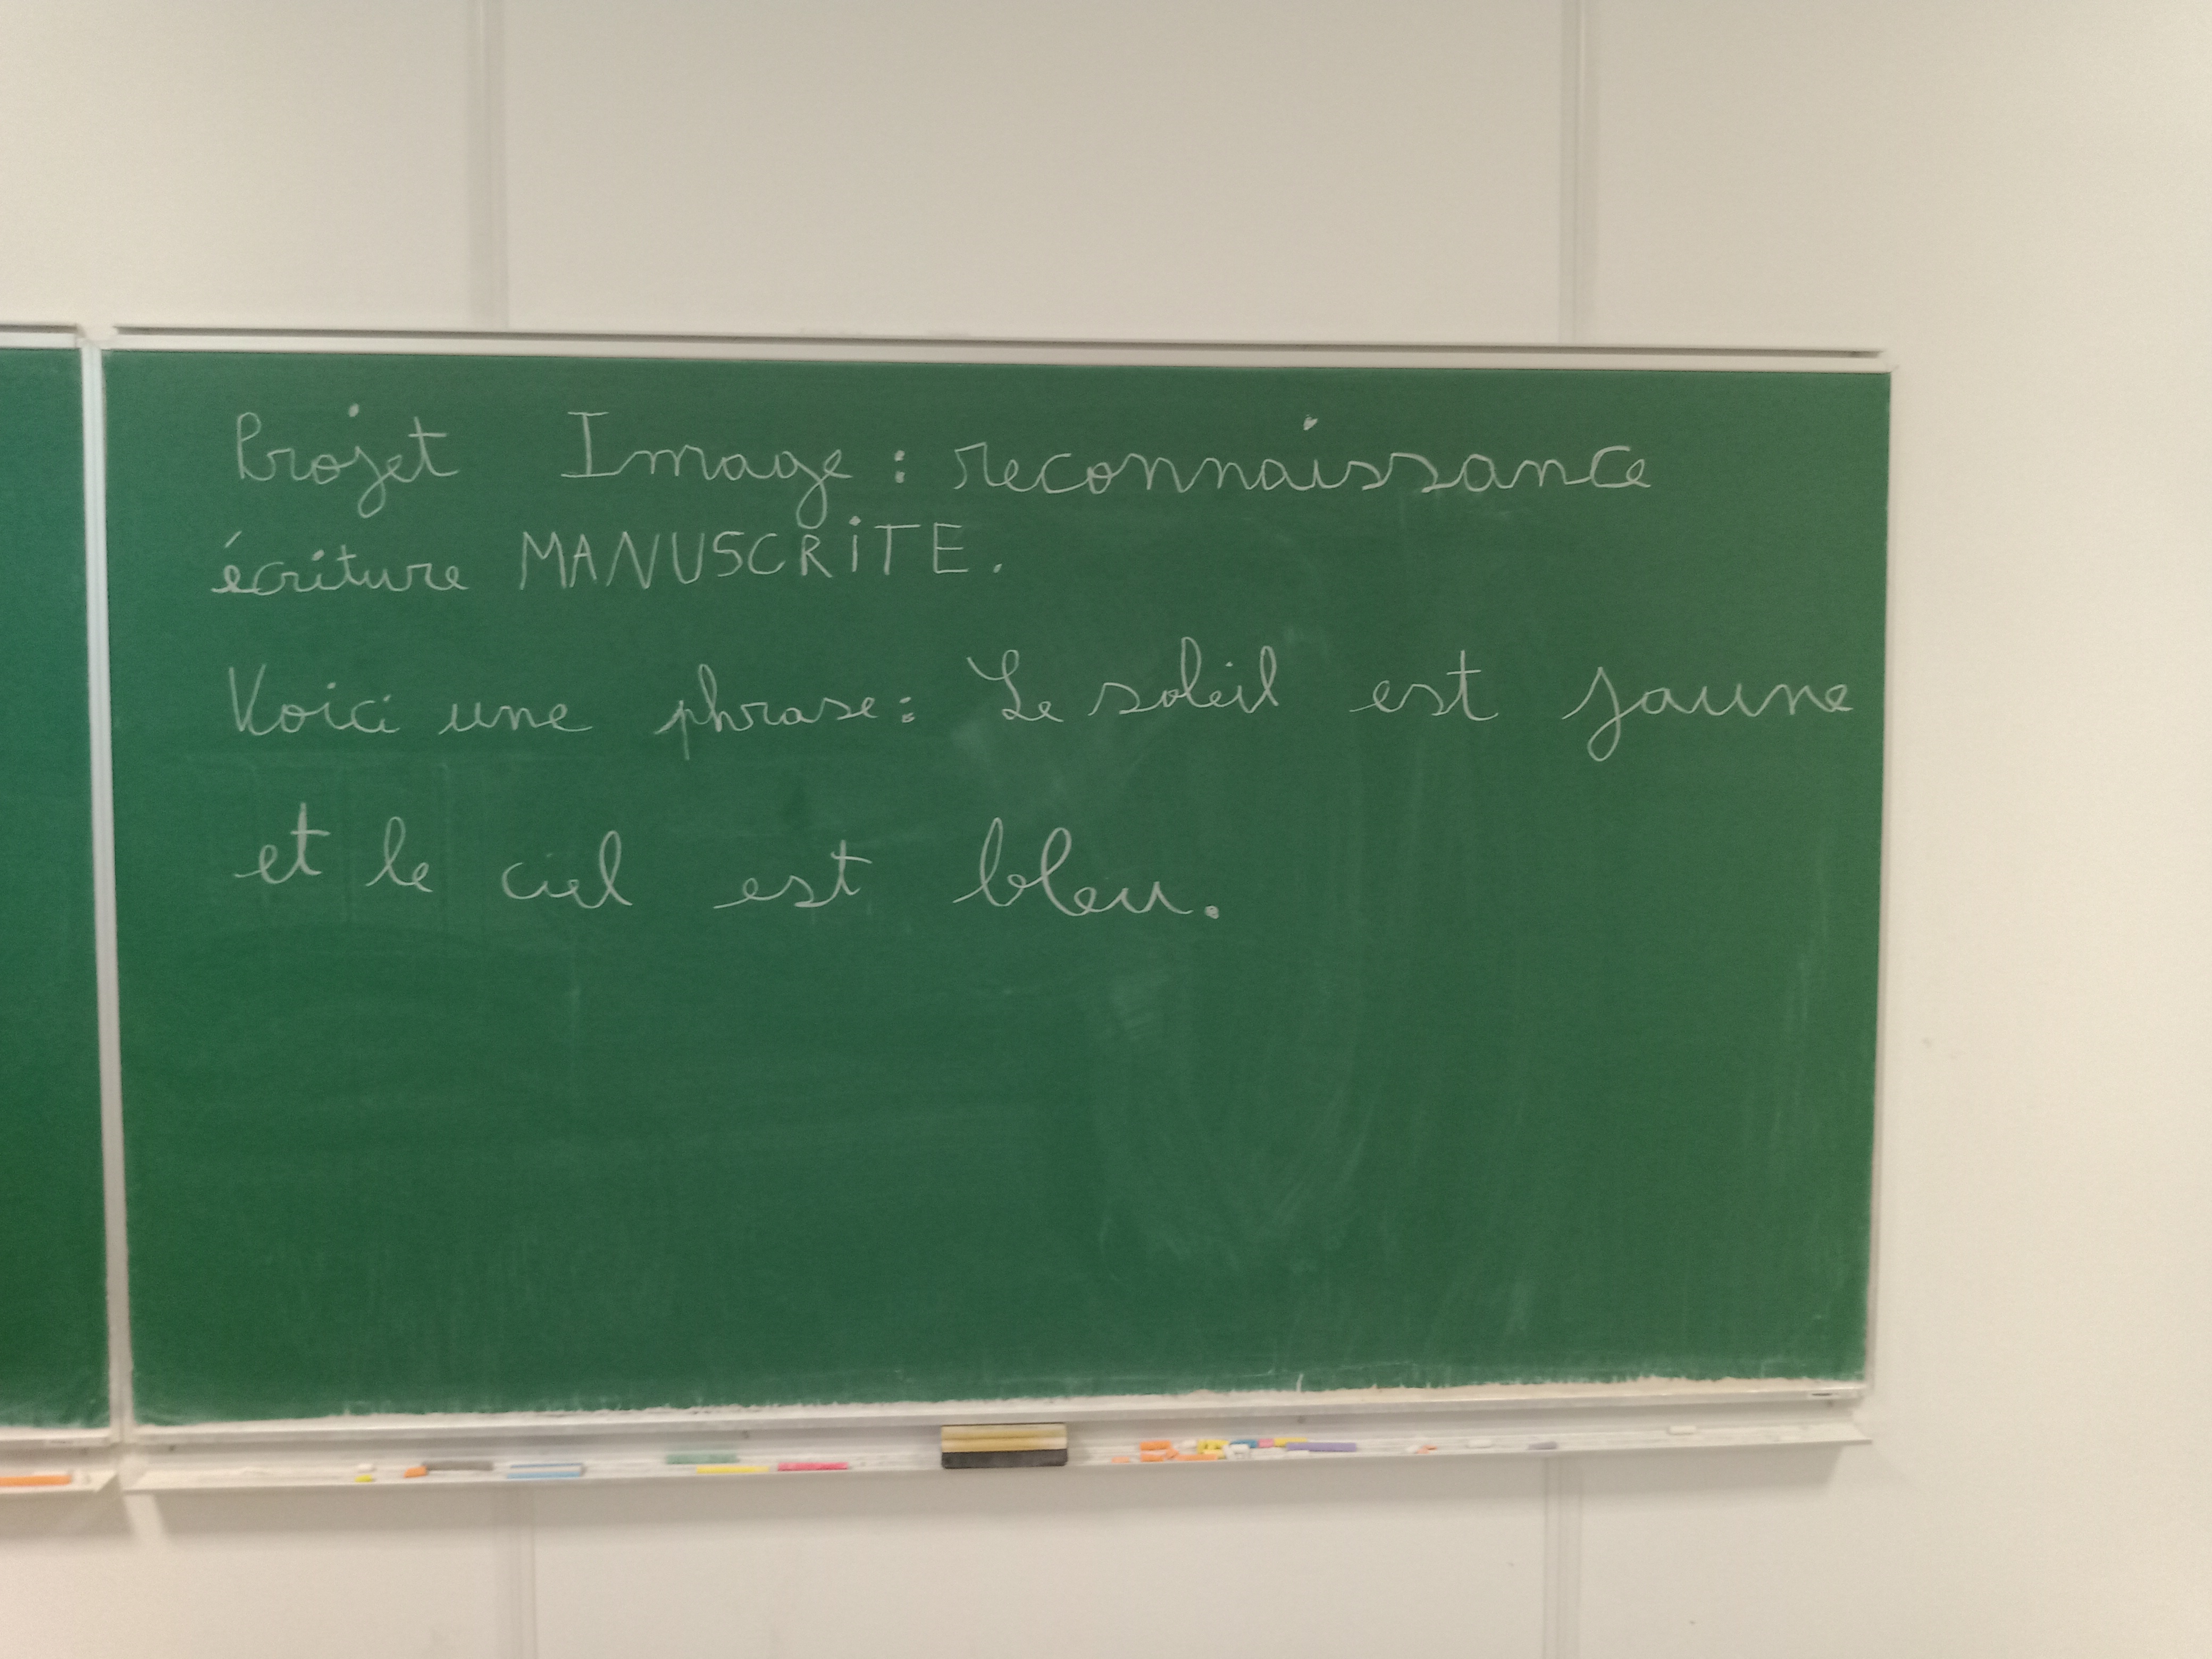 Projet Image : reconnaissance
écriture MANUSCRiTE.
Voici une phrase : Le soleil est jaune
et le ciel est bleu.